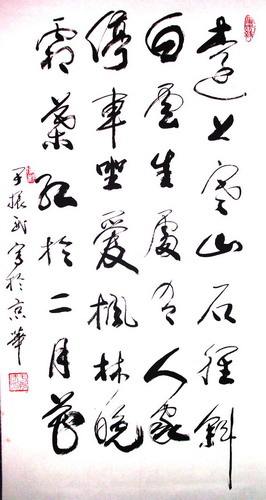 遠上寒山石徑斜
白雲生處有人家
停車坐愛楓林晚
霜葉紅於二月花
振武寫於京華